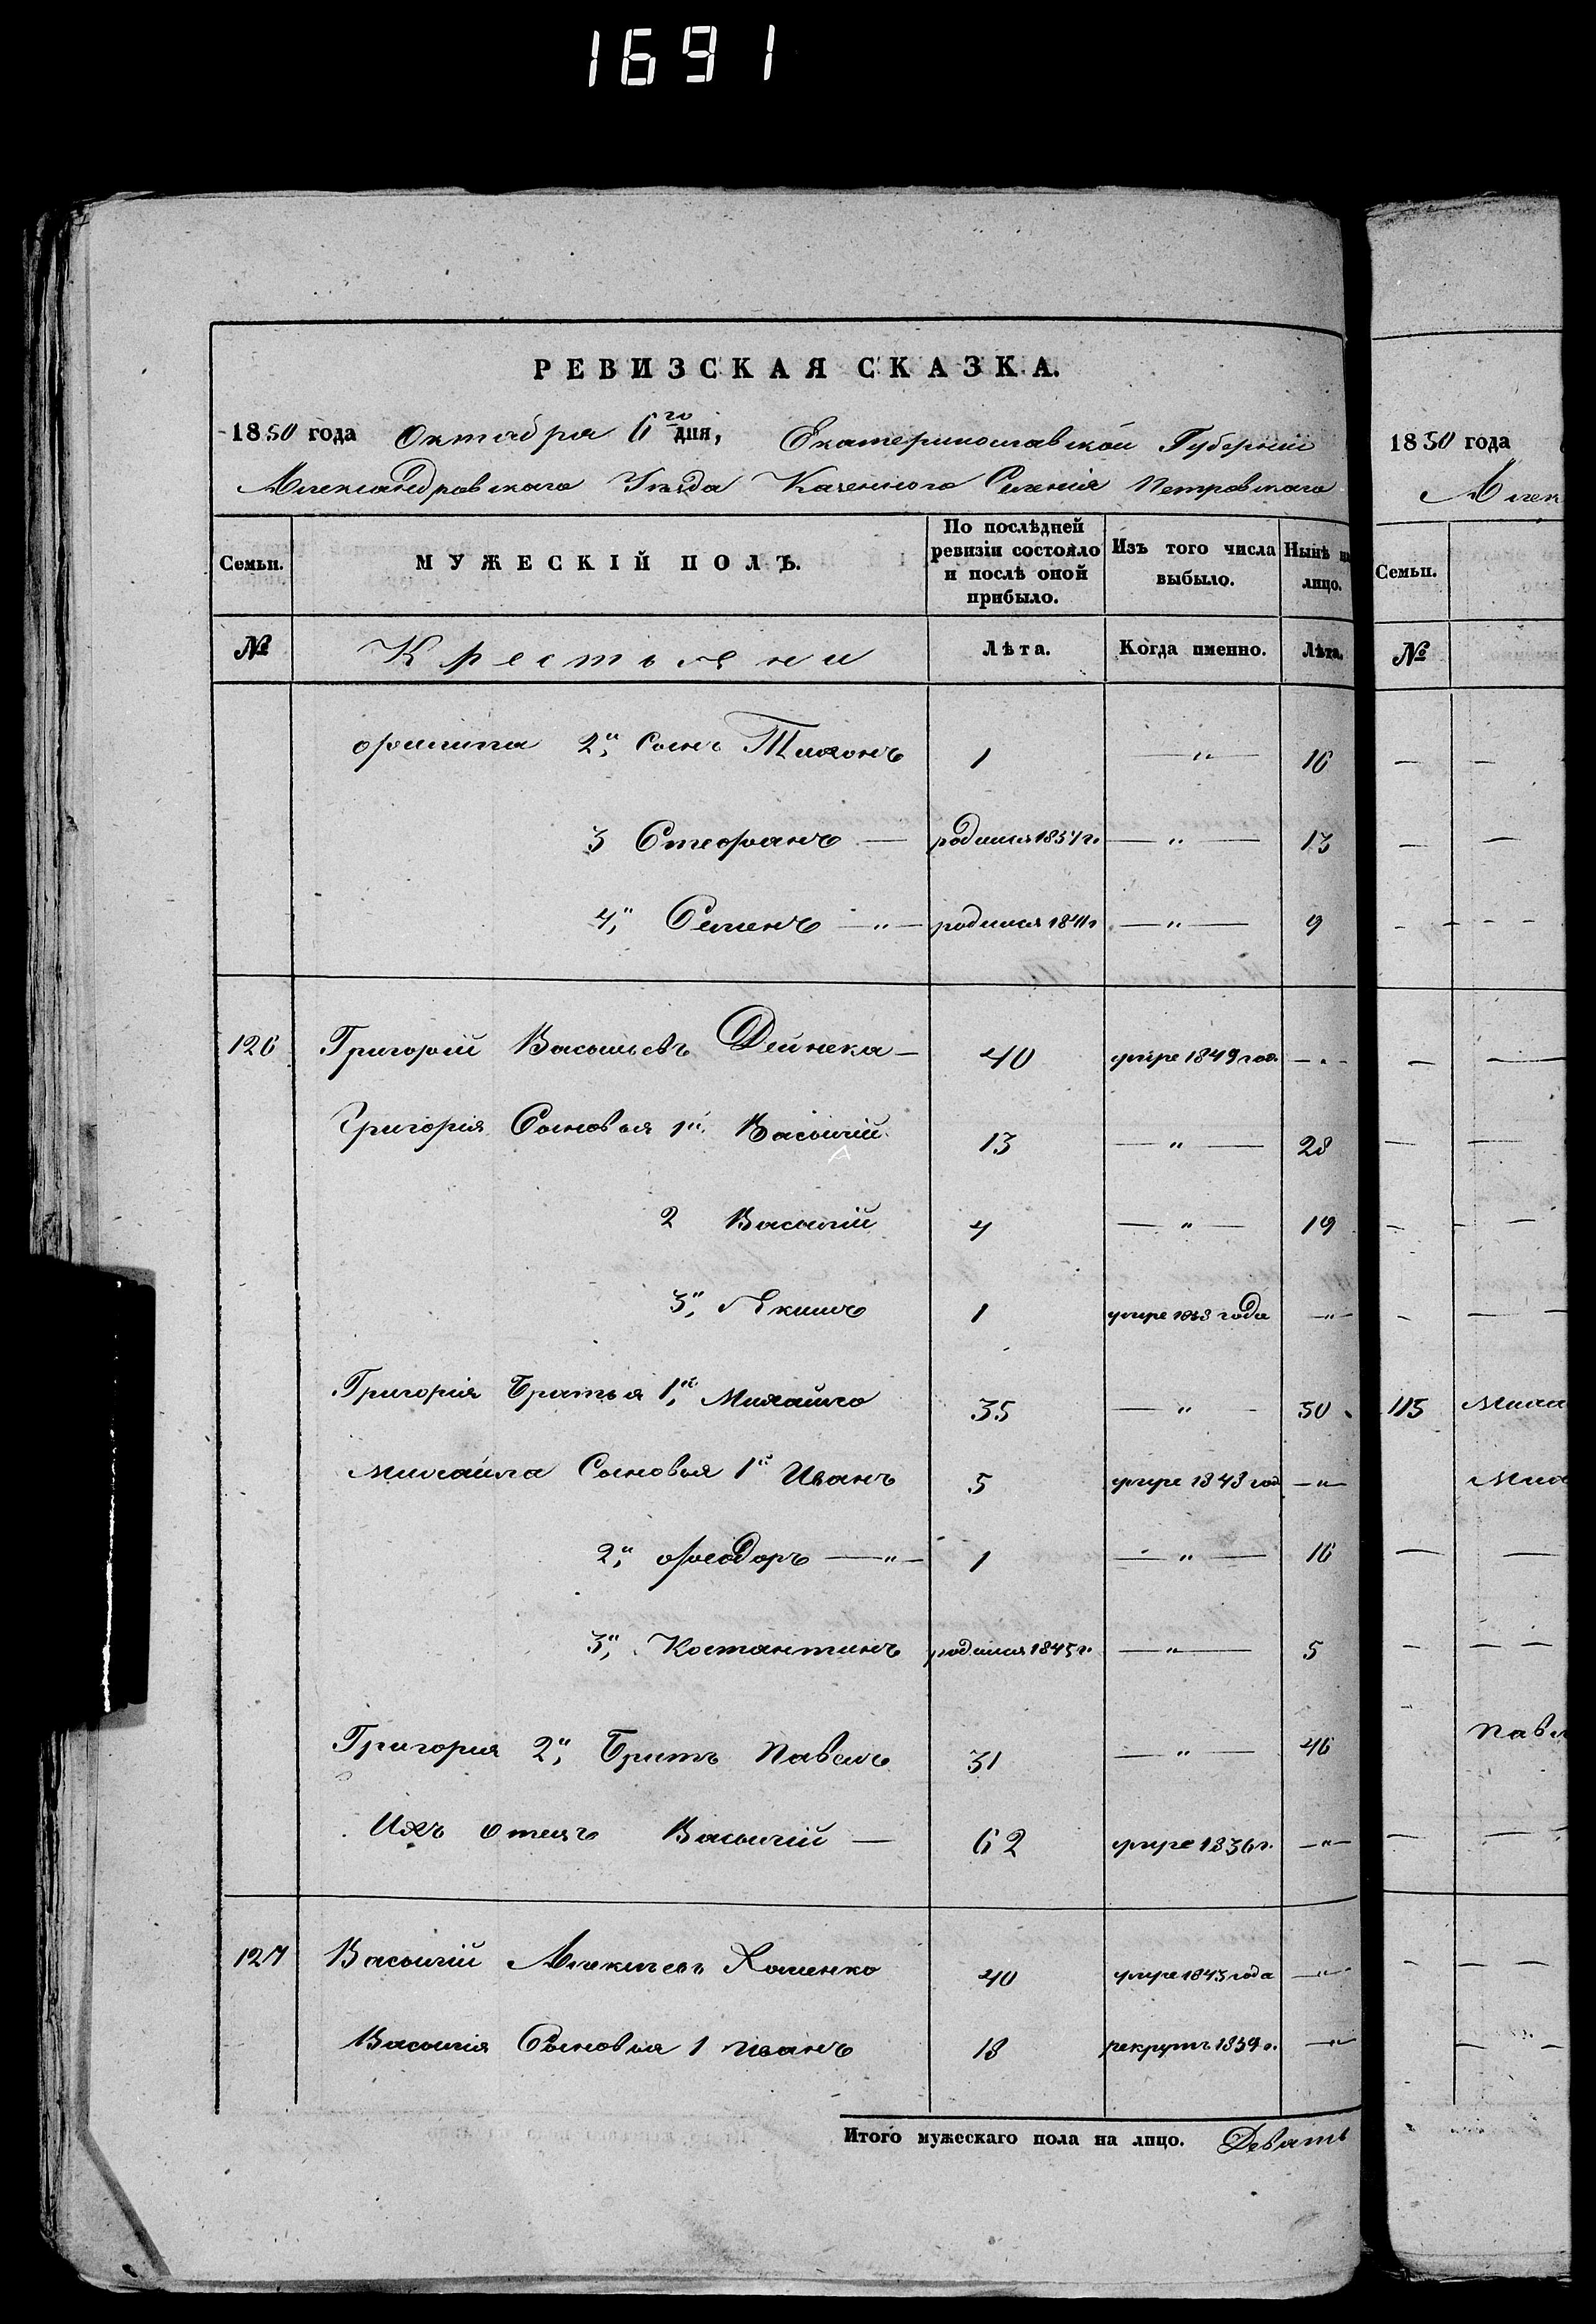 1691
РЕВИЗСКАЯ СКАЗКА.
1850 года Октября 6го дня, Екатеринославской Губерніи
Александровскаго Уѣзда Казеннаго Селенія Петровскаго
Семьи. МУЖЕСКІЙ ПОЛЪ. По послѣдней ревизіи состояло и послѣ оной прибыло. Изъ того числа выбыло. Нынѣ на лицо.
№ Крестьяни Лѣта. Когда именно. Лѣта.
2й Сынъ Тихонъ 1 —"— 16
3 Стефанъ — родился 1837г. —"— 13
4й Семенъ —"— родился 1841г —"— 9
126 Григорій Васильевъ Дейнека — 40 умре 1849 год. — . —
Григорія Сыновья 1й Василій 13 —"— 28
2 Василій 4 —"— 19
3й Якимъ 1 умре 1843 года —"—
Григорія Братья 1й Михайло 35 —"— 50
Михайла Сыновья 1й Иванъ 5 умре 1843 год —"—
2й Феодоръ —"— 1 —"— 16
3й Костантинъ родился 1845г. —"— 5
Григорія 2й Братъ Павелъ 31 —"— 46
Ихъ Отецъ Василій — 62 умре 1836г. —"—
127 Василій Хоменко 40 умре 1843 года —"—
Василія Сыновья 1 Иванъ 18 рекрутъ 1839г. —"—
Итого мужескаго пола на лицо. Девять
1850 года
Алек
Семьи.
№
115 Миха
Миха
Павл